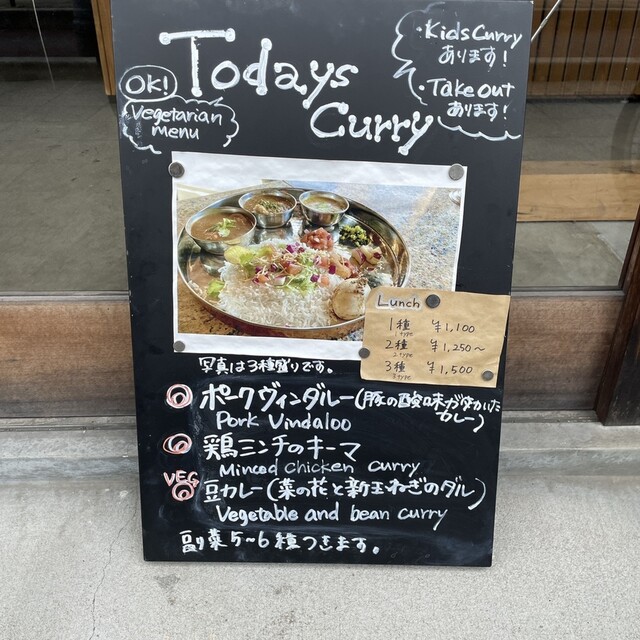 Todays
Curry
OK!
Vegetarian
menu
・Kids Curry
あります!
・Take Out
あります!
Lunch
1種 ¥1,100
1 type
2種 ¥1,250~
2 type
3種 ¥1,500
3 type
写真は3種盛りです。
ポークヴィンダルー(豚の酸味が効いた
カレー)
Pork Vindaloo
鶏ミンチのキーマ
Minced chicken curry
VEG
豆カレー(菜の花と新玉ねぎのダル)
Vegetable and bean curry
副菜5~6種つきます。